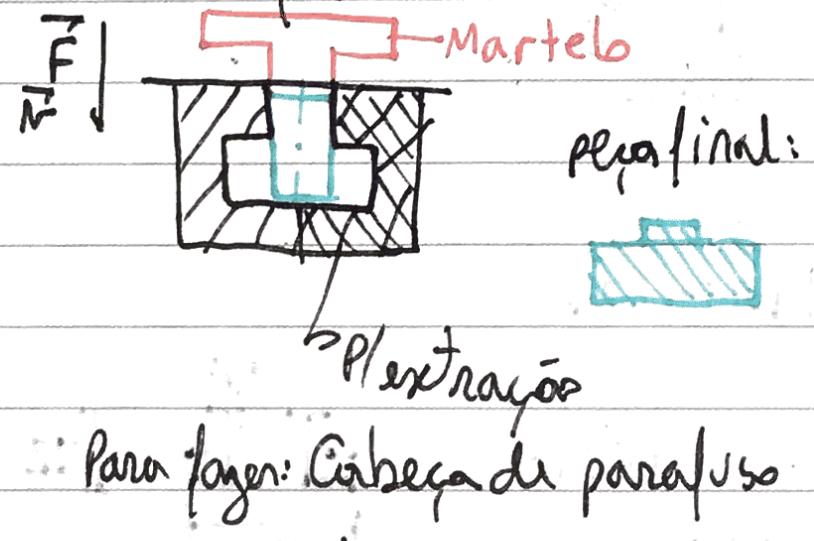 F
v
Martelo
peça final:
P/ extração
Para fazer: Cabeça de parafuso